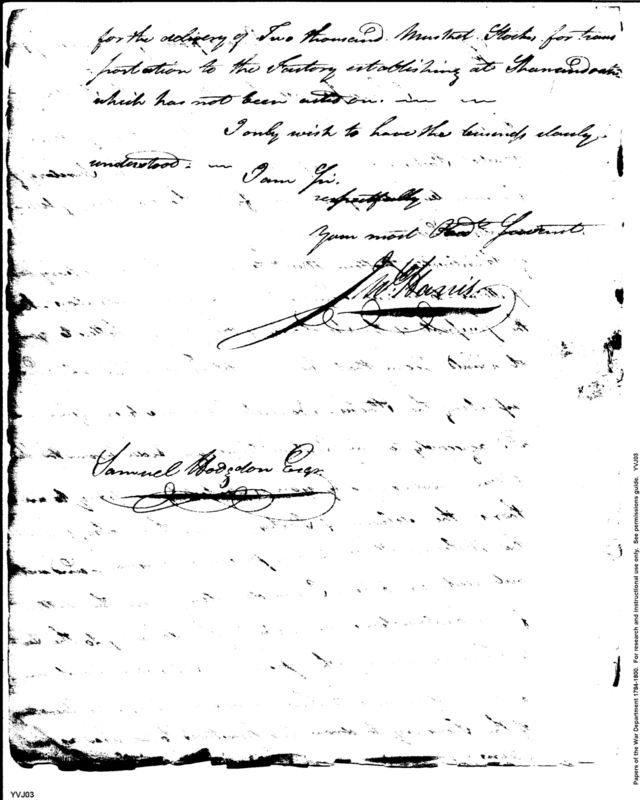 for the delivery of Two thousand Musket Stocks for trans
portation to the Factory establishing at Shanandoah
which has not been acted on.
I only wish to have the business clearly
understood.
I am Sir.
respectfully
Your most Obedt. Servant.
Jno. Harris
Samuel Hodgdon Esqr.
YVJ03
Papers of the War Department 1784-1800. For research and instructional use only. See permissions guide. YVJ03